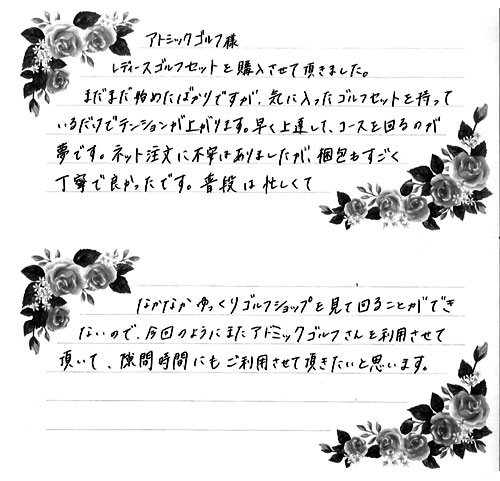 アトミックゴルフ様
レディースゴルフセットを購入させて頂きました。
まだまだ始めたばかりですが、気に入ったゴルフセットを持って
いるだけでテンションが上がります。早く上達して、コースを回るのが
夢です。ネット注文に不安はありましたが、梱包もすごく
丁寧で良かったです。普段は忙しくて
なかなかゆっくりゴルフショップを見て回ることができ
ないので、今回のようにまたアトミックゴルフさんを利用させて
頂いて、隙間時間にもご利用させて頂きたいと思います。